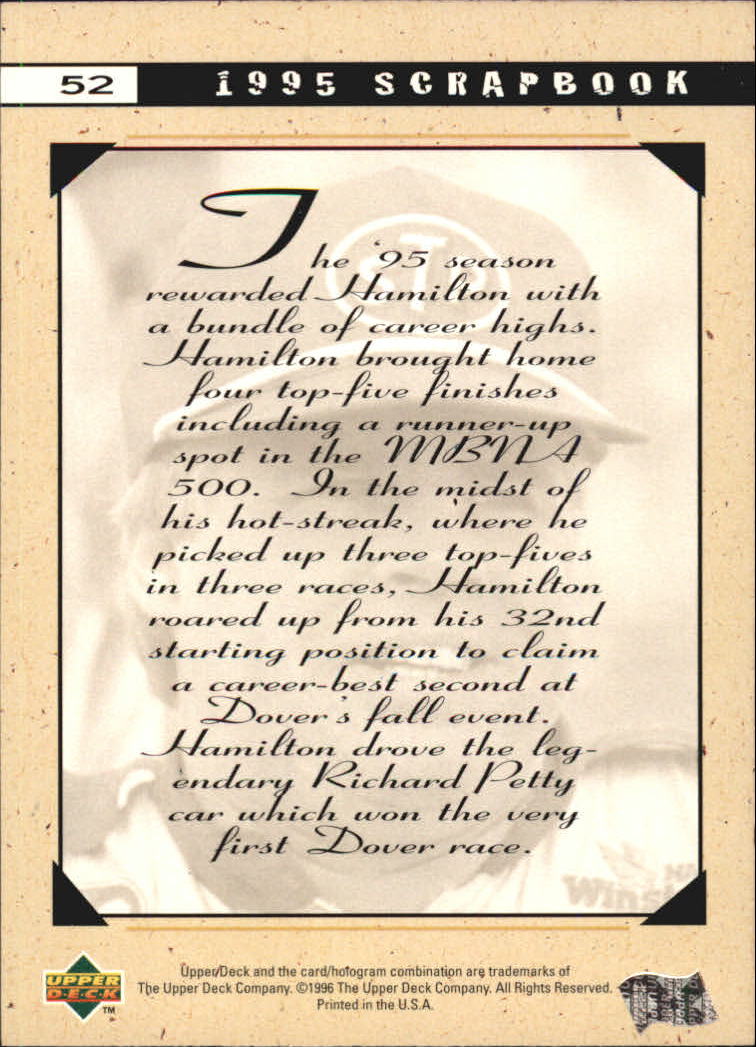 52 1995 SCRAPBOOK
The '95 season
rewarded Hamilton with
a bundle of career highs.
Hamilton brought home
four top-five finishes
including a runner-up
spot in the MBNA
500. In the midst of
his hot-streak, where he
picked up three top-fives
in three races, Hamilton
roared up from his 32nd
starting position to claim
a career-best second at
Dover's fall event.
Hamilton drove the leg-
endary Richard Petty
car which won the very
first Dover race.
STP
NA
Winst
UPPER
DECK
TM
Upper Deck and the card/hologram combination are trademarks of
The Upper Deck Company. ©1996 The Upper Deck Company. All Rights Reserved.
Printed in the U.S.A.